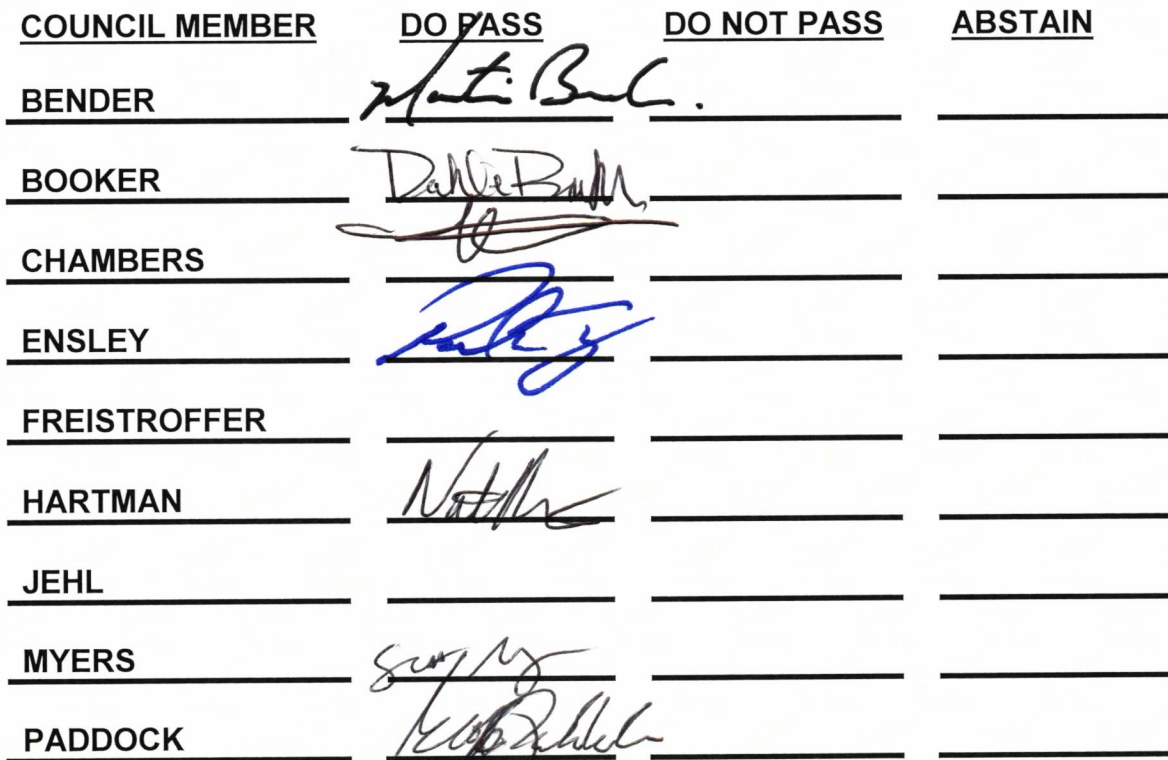 COUNCIL MEMBER DO PASS DO NOT PASS ABSTAIN
BENDER Martin Bender.
BOOKER
CHAMBERS
ENSLEY
FREISTROFFER
HARTMAN
JEHL
MYERS
PADDOCK